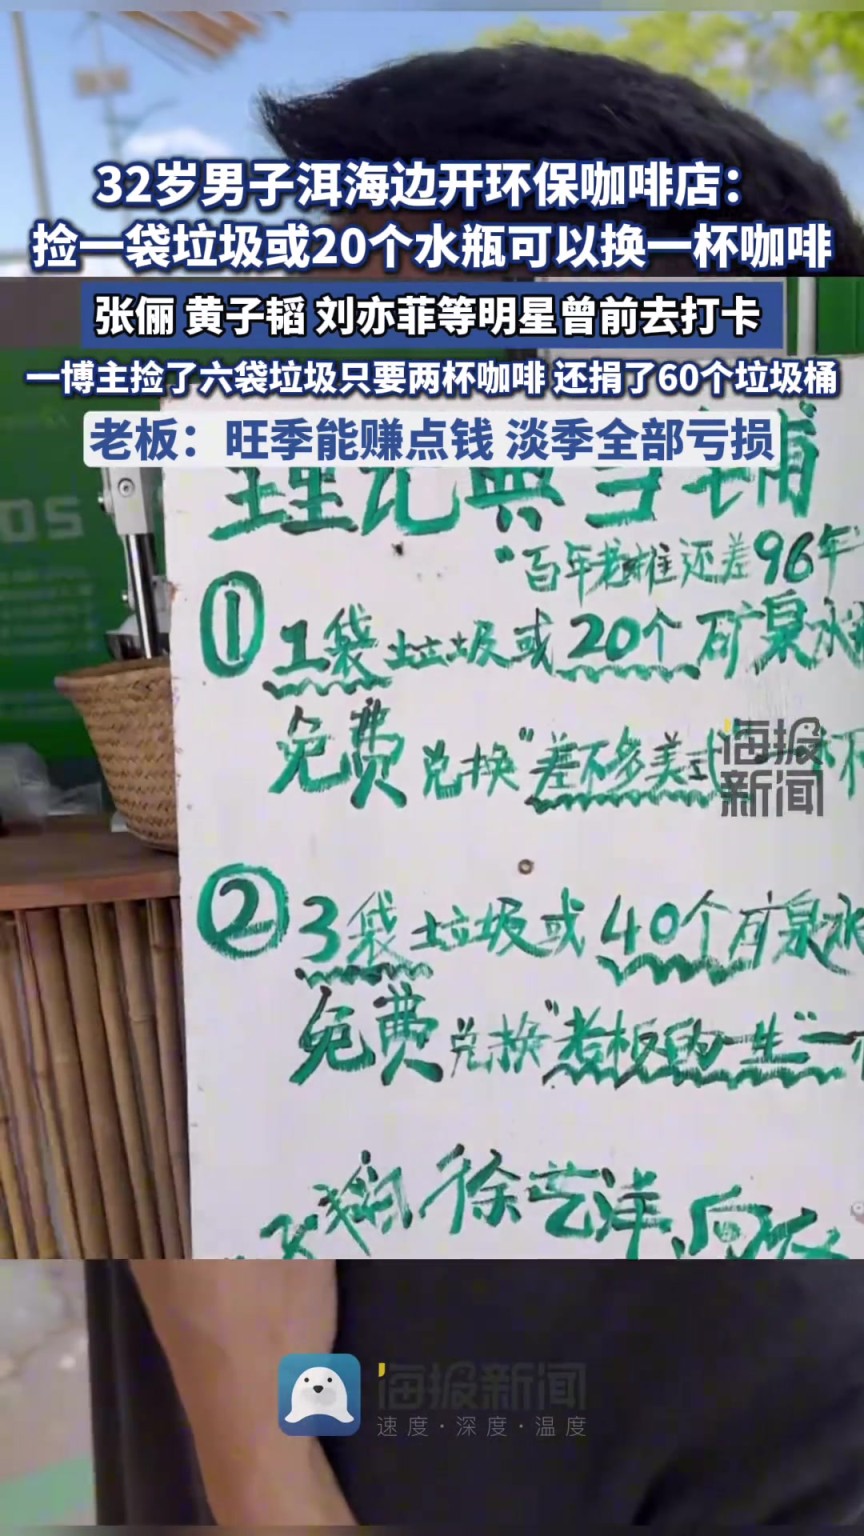 32岁男子洱海边开环保咖啡店：
捡一袋垃圾或20个水瓶可以换一杯咖啡
张俪 黄子韬 刘亦菲等明星曾前去打卡
一博主捡了六袋垃圾只要两杯咖啡 还捐了60个垃圾桶
老板：旺季能赚点钱 淡季全部亏损
OS
"百年老摊还差96年"
① 1袋垃圾或20个矿泉水
免费兑换"差不多美式
海报
新闻
② 3袋垃圾或40个矿泉水
免费兑换"老板的一生"一
徐艺洋
海报新闻
速度·深度·温度